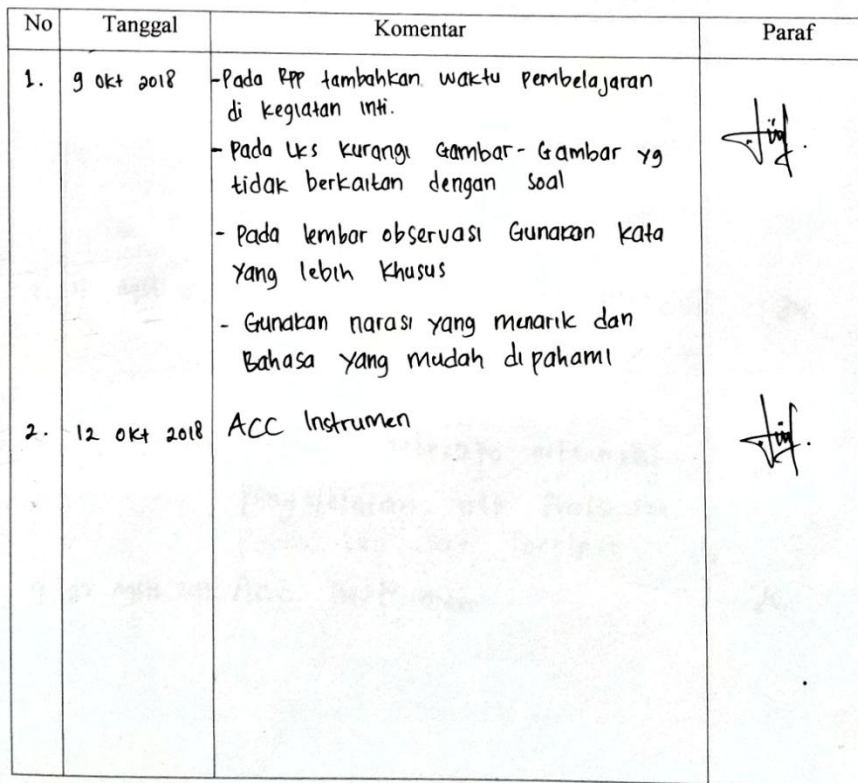 No Tanggal Komentar Paraf
1. 9 Okt 2018 -Pada RPP tambahkan waktu pembelajaran
di kegiatan inti.
- Pada LKS kurangi Gambar-Gambar yg
tidak berkaitan dengan soal
- Pada lembar observasi Gunakan kata
yang lebih khusus
- Gunakan narasi yang menarik dan
Bahasa yang mudah dipahami
2. 12 Okt 2018 ACC Instrumen